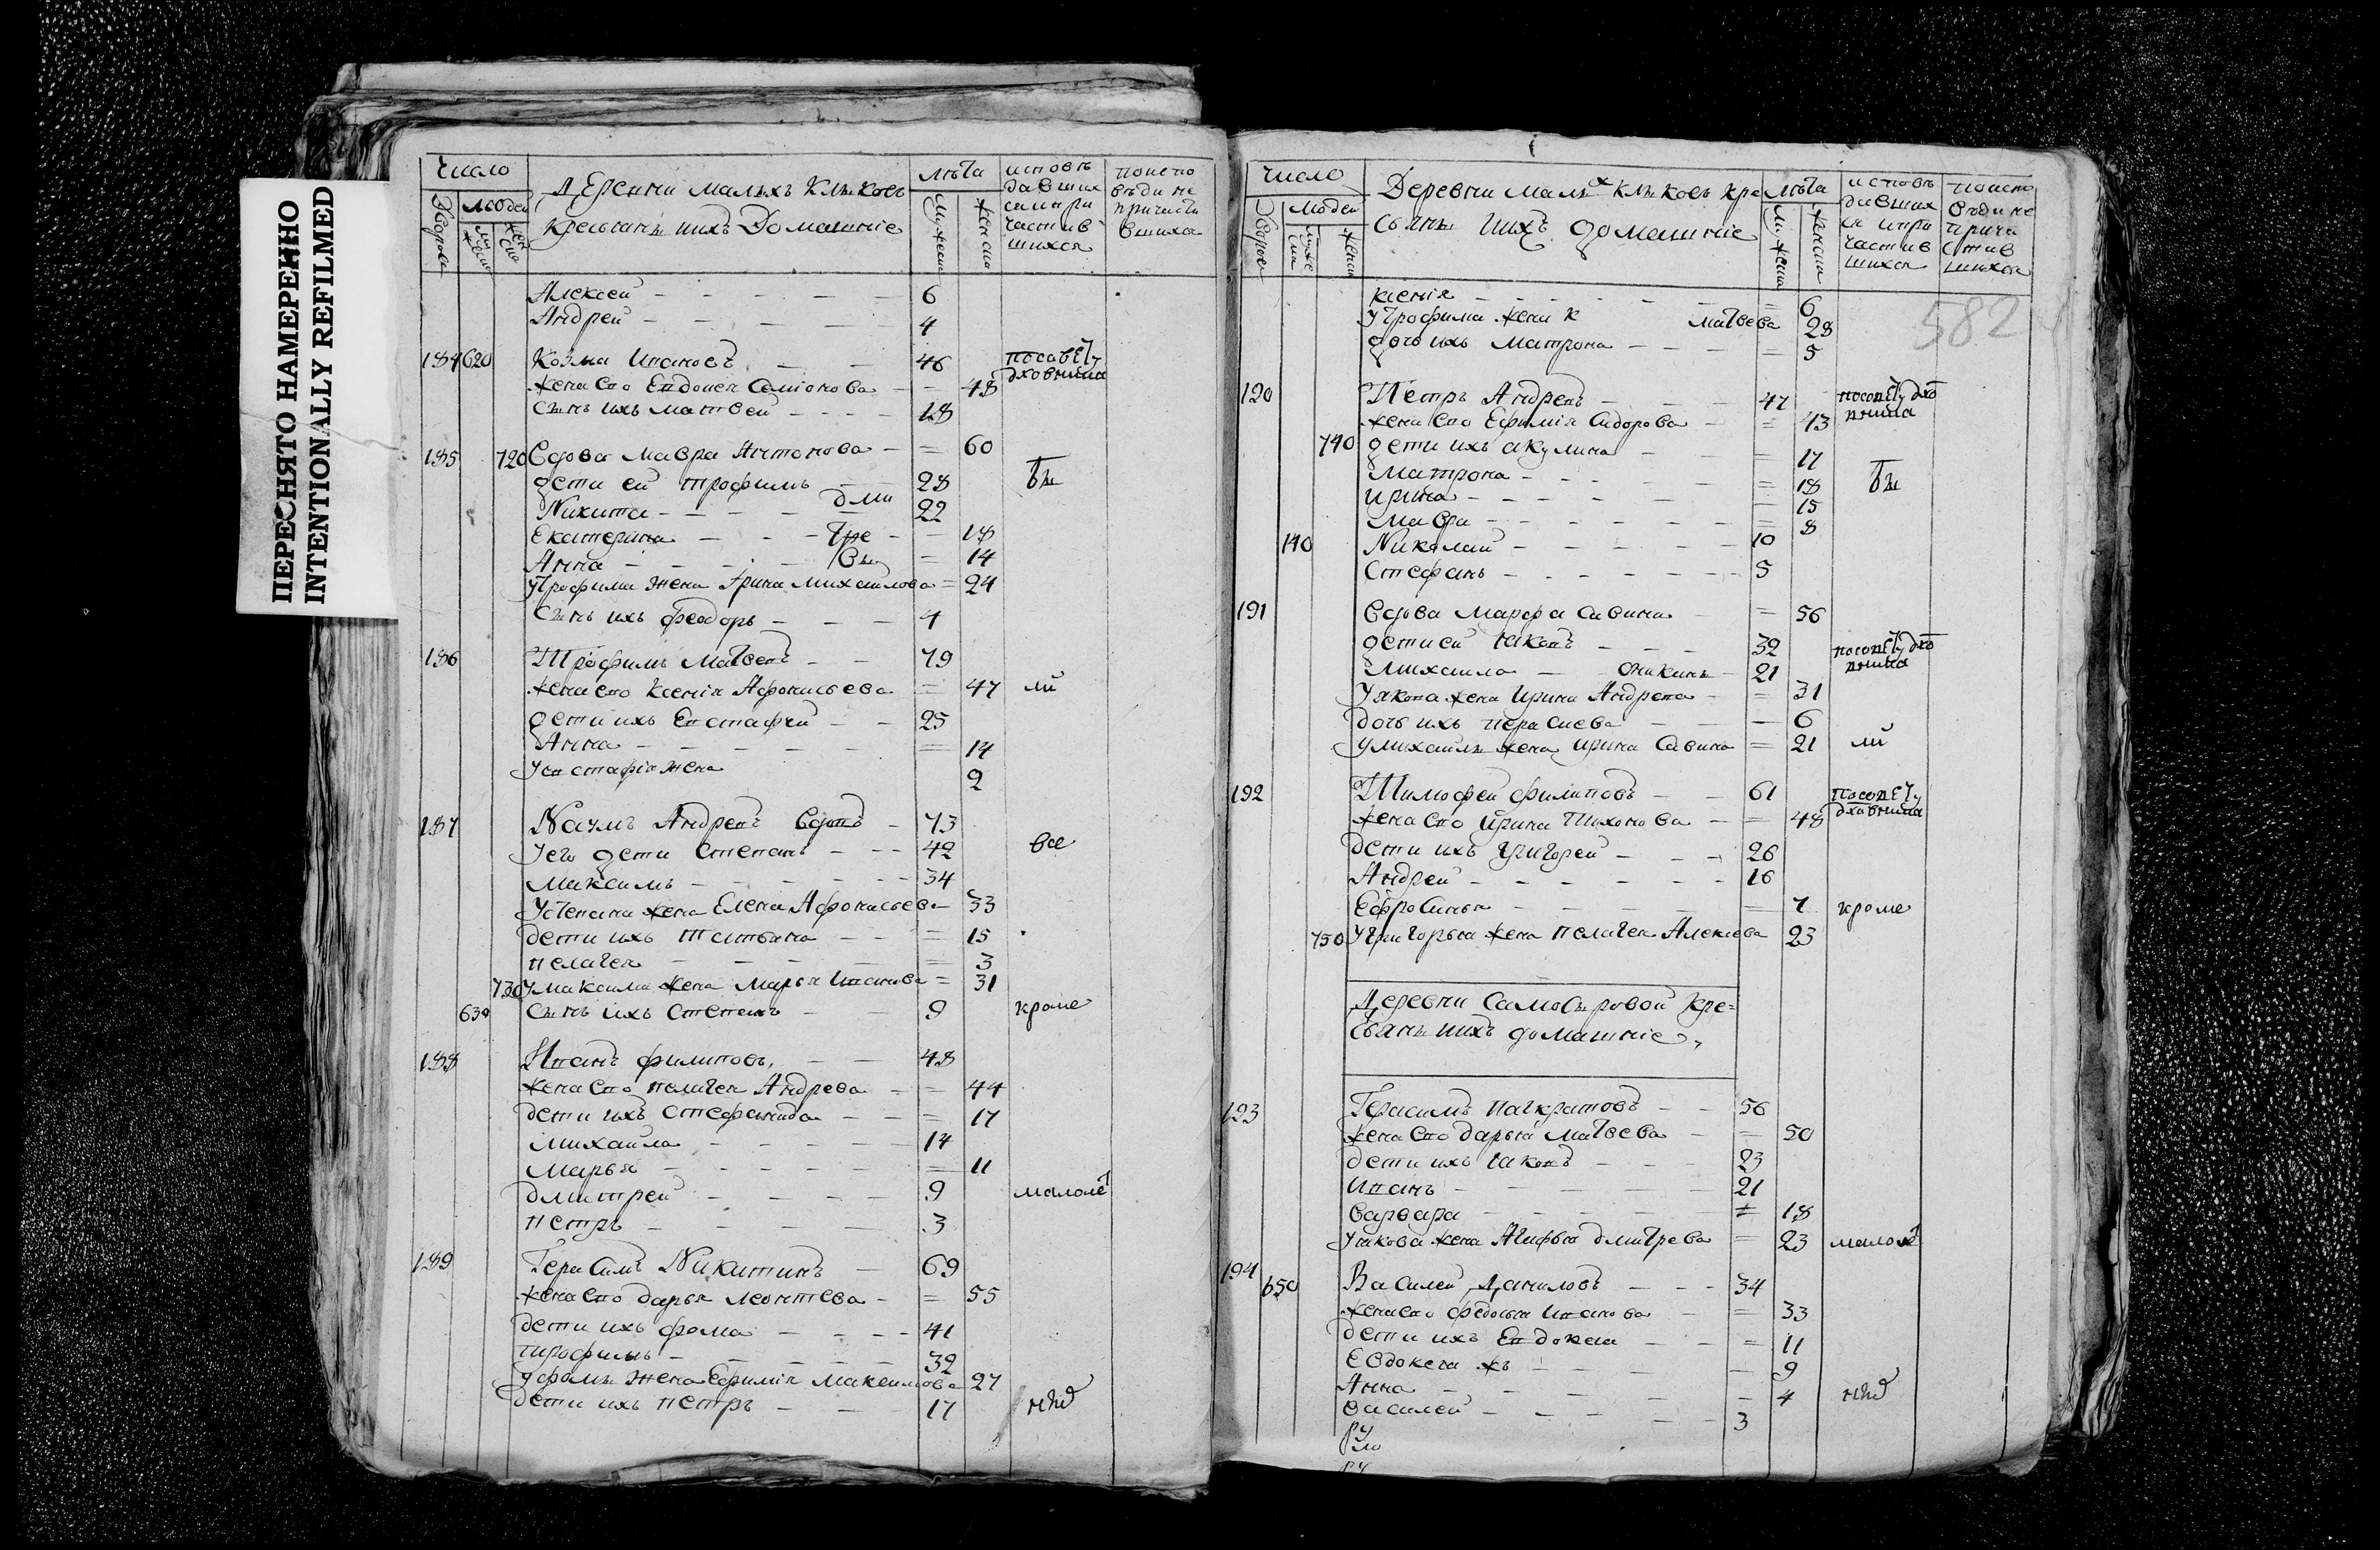 ПЕРЕСНЯТО НАМЕРЕННО
INTENTIONALLY REFILMED
Число
людей
Дворовъ
мужеска
женска
Деревни малыхъ Клыковъ
крестьяны ихъ домашніе
лѣта
мужеска
женска
исповѣ
давших
сяипри
частив
шихся
поиспо
вѣди не
причасти
вшихся
Алексей 6
Андрей 4
184 620 Козма Ивановъ 46
жена ево Евдокея Семіонова 48
сынъ ихъ матвей 18
185 720 Вдова мавра Антонова 60
дети ей трофимъ 28
Никита 22
Екатерина 18
Анна 14
Утрофима жена Арина михаилова 24
Сынъ ихъ феодоръ 4
186 Трофимъ матвевъ 79
жена ево Ксенія Афонасьева 47
дети ихъ Евстафей 25
Анна 14
Уевстафія жена
2
187 Наумъ Андревъ вдовъ 73
Уего дети Степанъ 42 все
максимъ 34
Устепана жена Елена Афонасьева 33
дети ихъ татьяна 15
пелагея 3
730 Умаксима жена марья иванова 31
630 Сынъ ихъ Степанъ 9 кроме
188 Иванъ филиповъ 48
жена ево пелагея Андрева 44
дети ихъ Стефанида 17
михаила 14
марья 11
дмитрей 9 малолѣт
петръ 3
189 Герасимъ Никитинъ 69
жена ево дарья леонтева 55
дети ихъ фома 41
трофимъ 32
Уфомы жена Ефимія максимова 27
дети ихъ петръ 17
582
число
людей
Дворовъ
мужеска
женска
Деревни малыхъ клыковъ кре
стьяны ихъ домашніе
лѣта
мужеска
женска
исповѣ
давших
ся ипри
частив
шихся
поиспо
вѣди не
прича
стив
шихся
ксенія 6
Утрофима жена матвева 28
дочь ихъ матрона 5
190 Петръ Андревъ 47
жена ево Ефимія Сидорова 43
740 дети ихъ акулина 17
матрона 18
ирина 15
мавра 8
640 Николай 10
Стефанъ 5
191 Вдова марфа Савина 56
дети ей иаковъ 32
михаила 21
Уякова жена Ирина Андрева 31
дочь ихъ парасиева 6
Умихаилы жена ирина Савина 21
192 Тимофей филиповъ 61
жена ево ирина Тихонова 48
дети ихъ григорей 26
Андрей 16
Ефросинья 7 кроме
750 Угригорья жена пелагея Алексева 23
Деревни Самосыровой кре=
стьяны ихъ домашніе,
193 Герасимъ панкратовъ 56
жена ево дарья матвева 50
дети ихъ иаковъ 23
иванъ 21
варвара 18
Уиакова жена Агафья дмитрева 23 малолѣт
194 650 Василей Даниловъ 34
жена ево федосья иванова 33
дети ихъ Евдокея 11
Евдокея жъ 9
Анна 4
василей 3